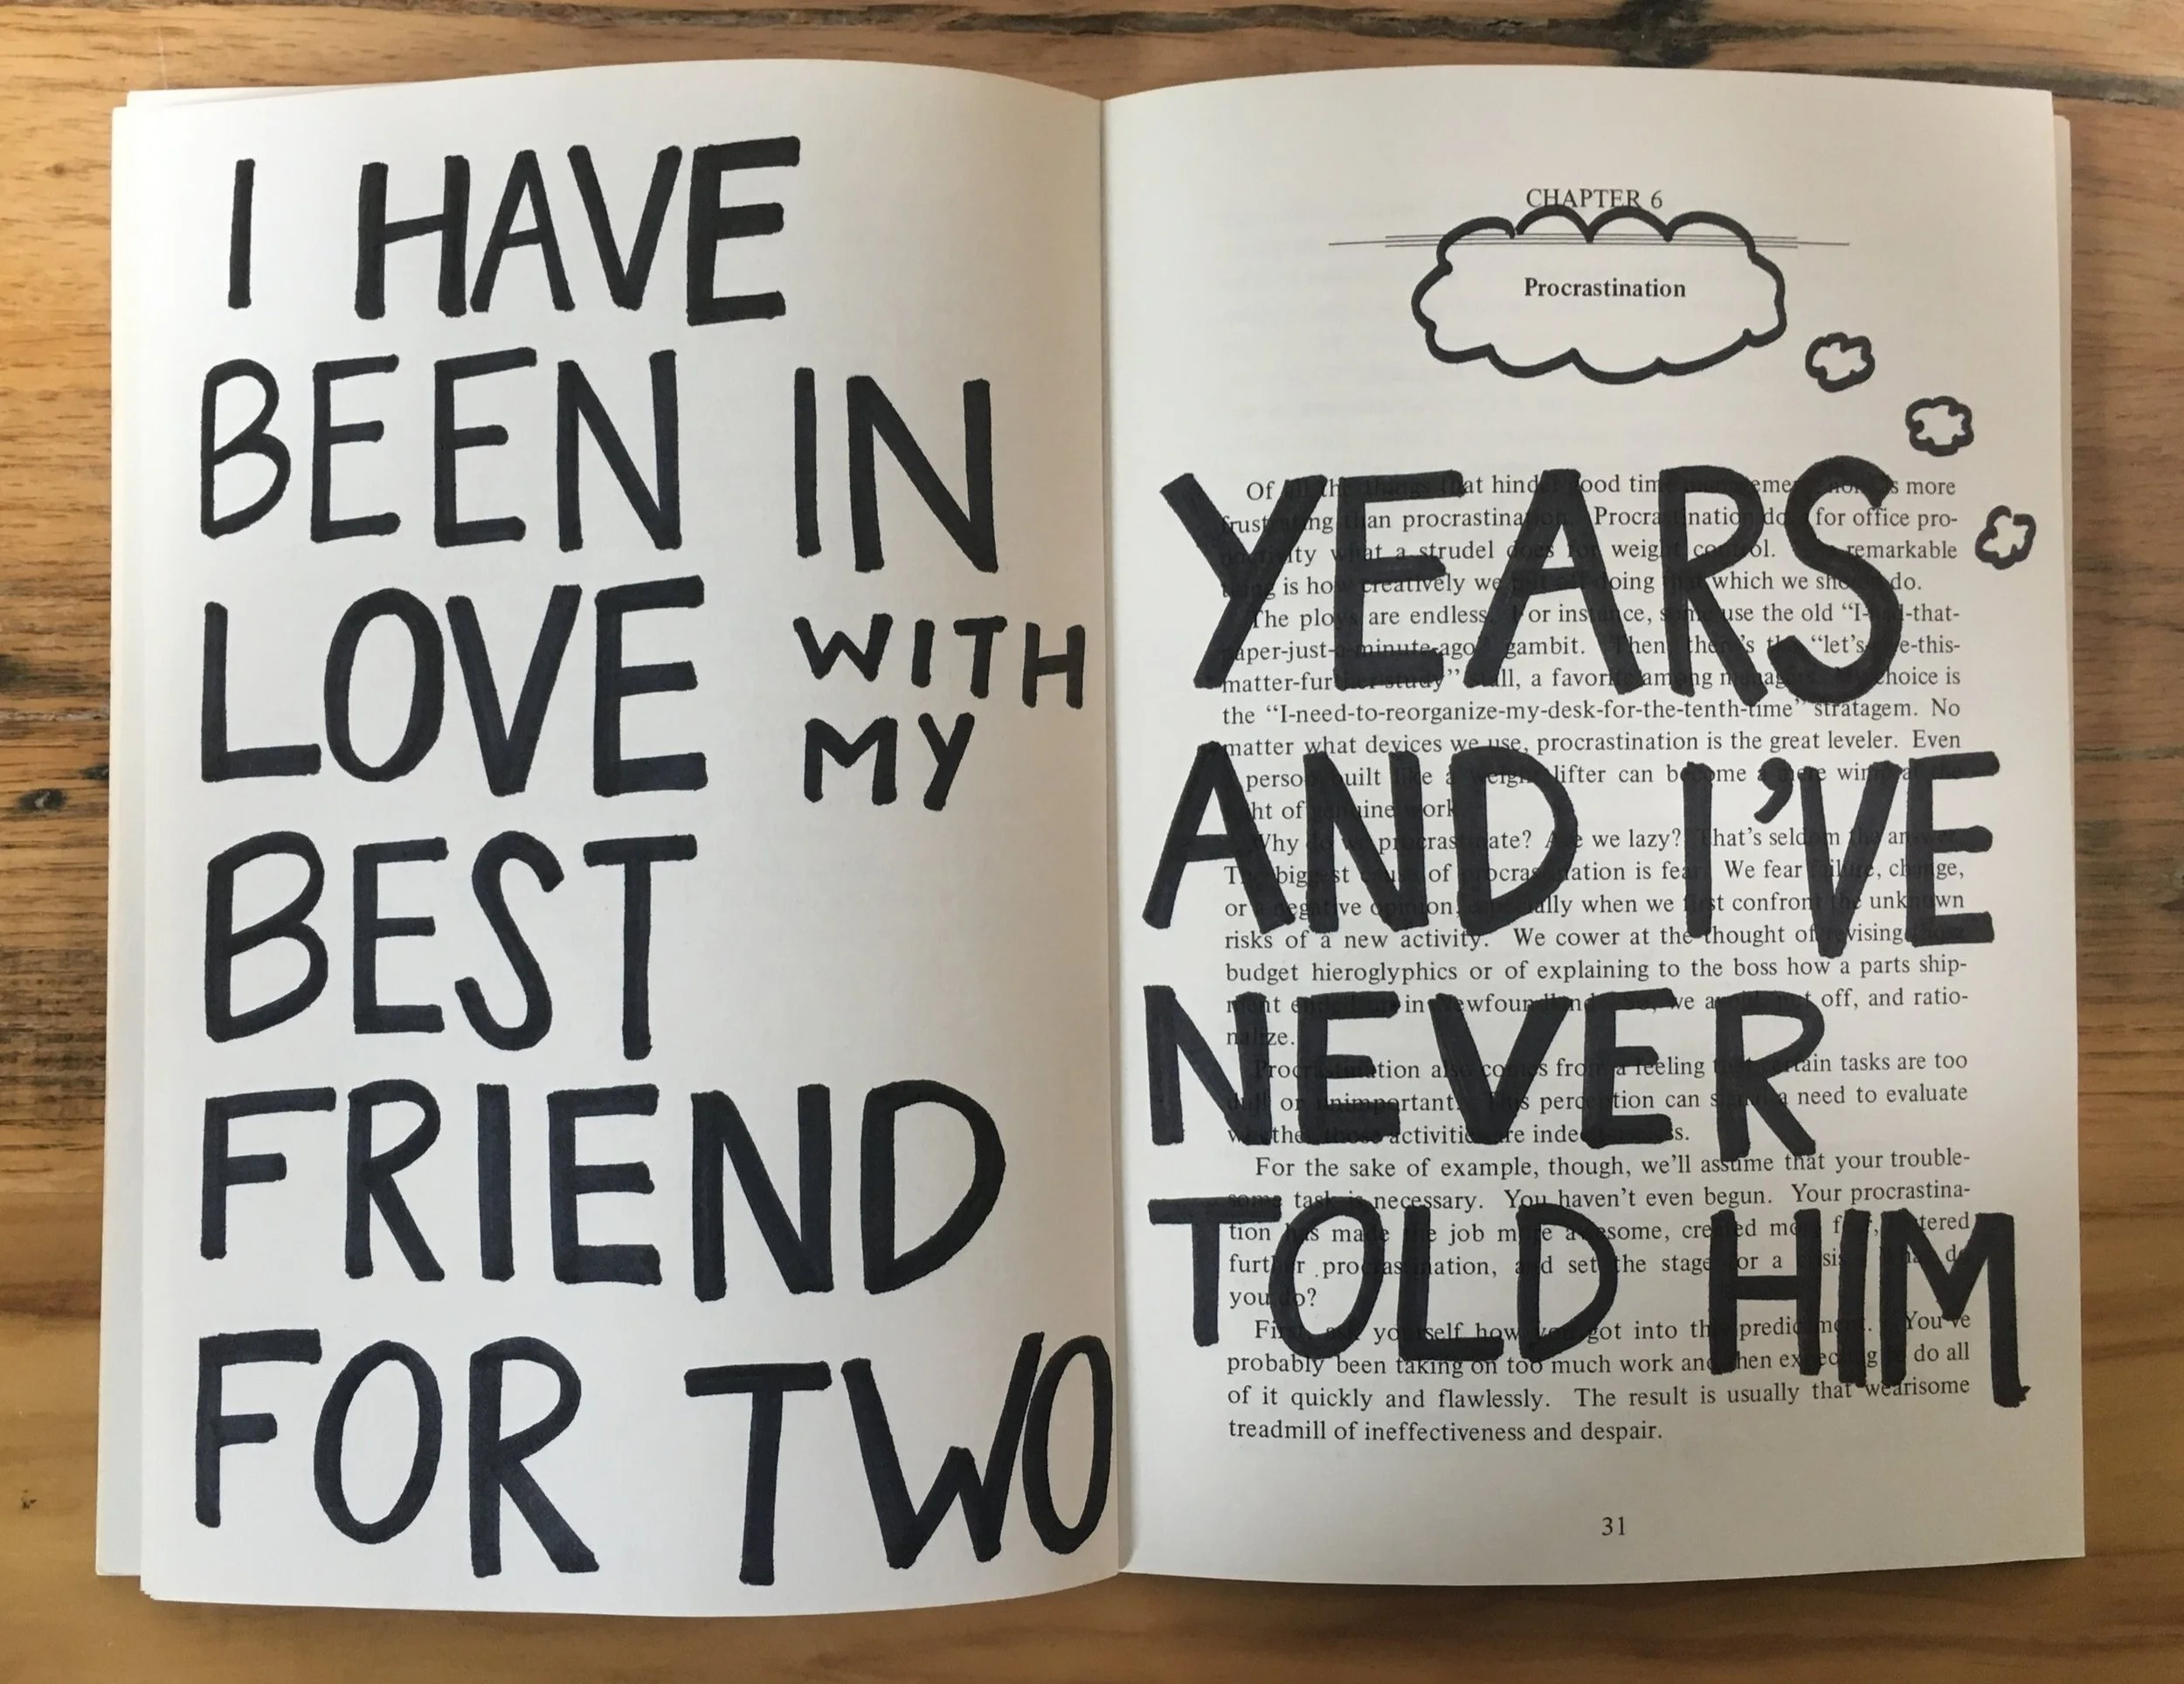 I HAVE
BEEN IN
LOVE WITH
MY
BEST
FRIEND
FOR TWO
CHAPTER 6
Procrastination
YEARS
AND I'VE
NEVER
TOLD HIM
Of the things that hinder good time more
than procrastination. Procrastination does for office pro-
what a strudel does for weight control. remarkable
is how creatively we put off doing that which we should do.
The ploys are endless. For instance, some use the old “I-had-that-
paper-just-a-minute-ago” gambit. Then there’s the “let’s-give-this-
matter-further-study” stall, a favorite among managers. My choice is
the “I-need-to-reorganize-my-desk-for-the-tenth-time” stratagem. No
matter what devices we use, procrastination is the great leveler. Even
a person built like a weight lifter can become a mere at the
of genuine work.
Why do we procrastinate? Are we lazy? That’s seldom the answer.
The biggest cause of procrastination is fear. We fear failure, change,
or a negative opinion, especially when we first confront the unknown
risks of a new activity. We cower at the thought of revising those
budget hieroglyphics or of explaining to the boss how a parts ship-
ment ended up in Newfoundland. So, we avoid, put off, and ratio-
nalize.
Procrastination also comes from a feeling that certain tasks are too
dull or unimportant. This perception can signal a need to evaluate
whether those activities are indeed
For the sake of example, though, we’ll assume that your trouble-
some task is necessary. You haven’t even begun. Your procrastina-
tion has made the job more awesome, created more fear,
further procrastination, and set the stage for a crisis. What do
you do?
First, ask yourself how you got into this predicament. You’ve
probably been taking on too much work and then expecting to do all
of it quickly and flawlessly. The result is usually that wearisome
treadmill of ineffectiveness and despair.
31